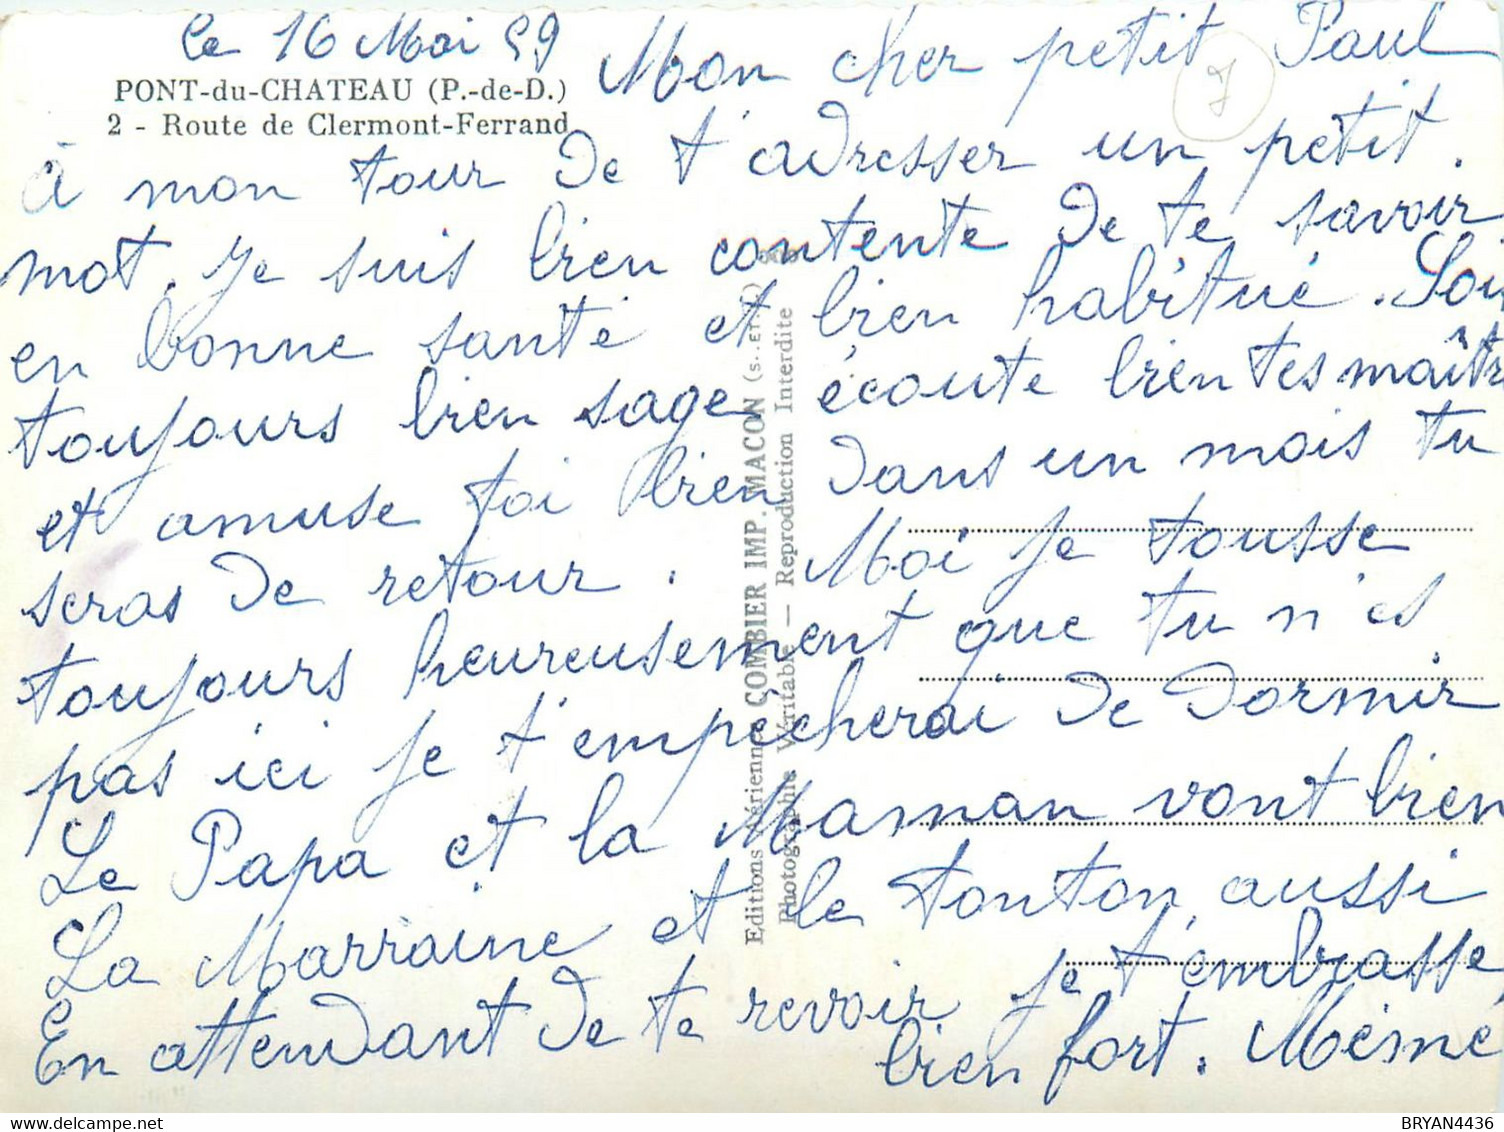 le 16 Mai 59
PONT-du-CHATEAU (P.-de-D.)
2 - Route de Clermont-Ferrand
Mon cher petit Paul
J
À mon tour de t'adresser un petit.
mot. Je suis bien contente de te savoir
en bonne santé et bien habitué. Sois
toujours bien sage écoute bien tes maîtr
et amuse toi bien dans un mois tu
seras de retour. Moi je tousse
toujours heureusement que tu n'es
pas ici je t'empêcherai de dormir
Le Papa et la Maman vont bien
La Marraine et le tonton, aussi
En attendant de te revoir je t'embrasse
bien fort. Mémé
Editions Aériennes COMBIER IMP. MACON (S.-ET-L.)
Photographie Véritable — Reproduction Interdite
BRYAN4436